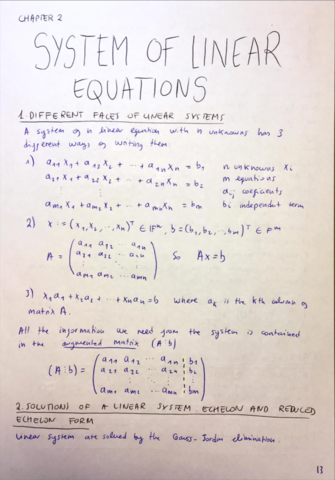 CHAPTER 2
SYSTEM OF LINEAR
EQUATIONS
1. DIFFERENT FACES OF LINEAR SYSTEMS
A system of n linear equation with n unknowns has 3
different ways of writing them:
1) a₁₁x₁ + a₁₂x₂ + ··· + a₁ₙxₙ = b₁ n unknowns xᵢ
a₂₁x₁ + a₂₂x₂ + ··· + a₂ₙxₙ = b₂ m equations
⋮ ⋮ aᵢⱼ coeficients
aₘ₁x₁ + aₘ₂x₂ + ··· + aₘₙxₙ = bₘ bᵢ independent term
2) x := (x₁, x₂, ..., xₙ)ᵀ ∈ 𝔽ⁿ, b = (b₁, b₂, ..., bₘ)ᵀ ∈ 𝔽ᵐ
A = ( a₁₁ a₁₂ ... a₁ₙ
a₂₁ a₂₂ ... a₂ₙ
⋮ ⋮
aₘ₁ aₘ₂ ... aₘₙ ) So Ax = b
3) x₁a₁ + x₂a₂ + ··· + xₙaₙ = b where aₖ is the kth column of
matrix A.
All the information we need from the system is contained
in the augmented matrix (A¦b)
(A¦b) = ( a₁₁ a₁₂ ... a₁ₙ ¦ b₁
a₂₁ a₂₂ ... a₂ₙ ¦ b₂
⋮ ⋮ ¦ ⋮
aₘ₁ aₘ₂ ... aₘₙ ¦ bₘ )
2. SOLUTIONS OF A LINEAR SYSTEM. ECHELON AND REDUCED
ECHELON FORM
Linear system are solved by the Gauss-Jordan elimination.
13